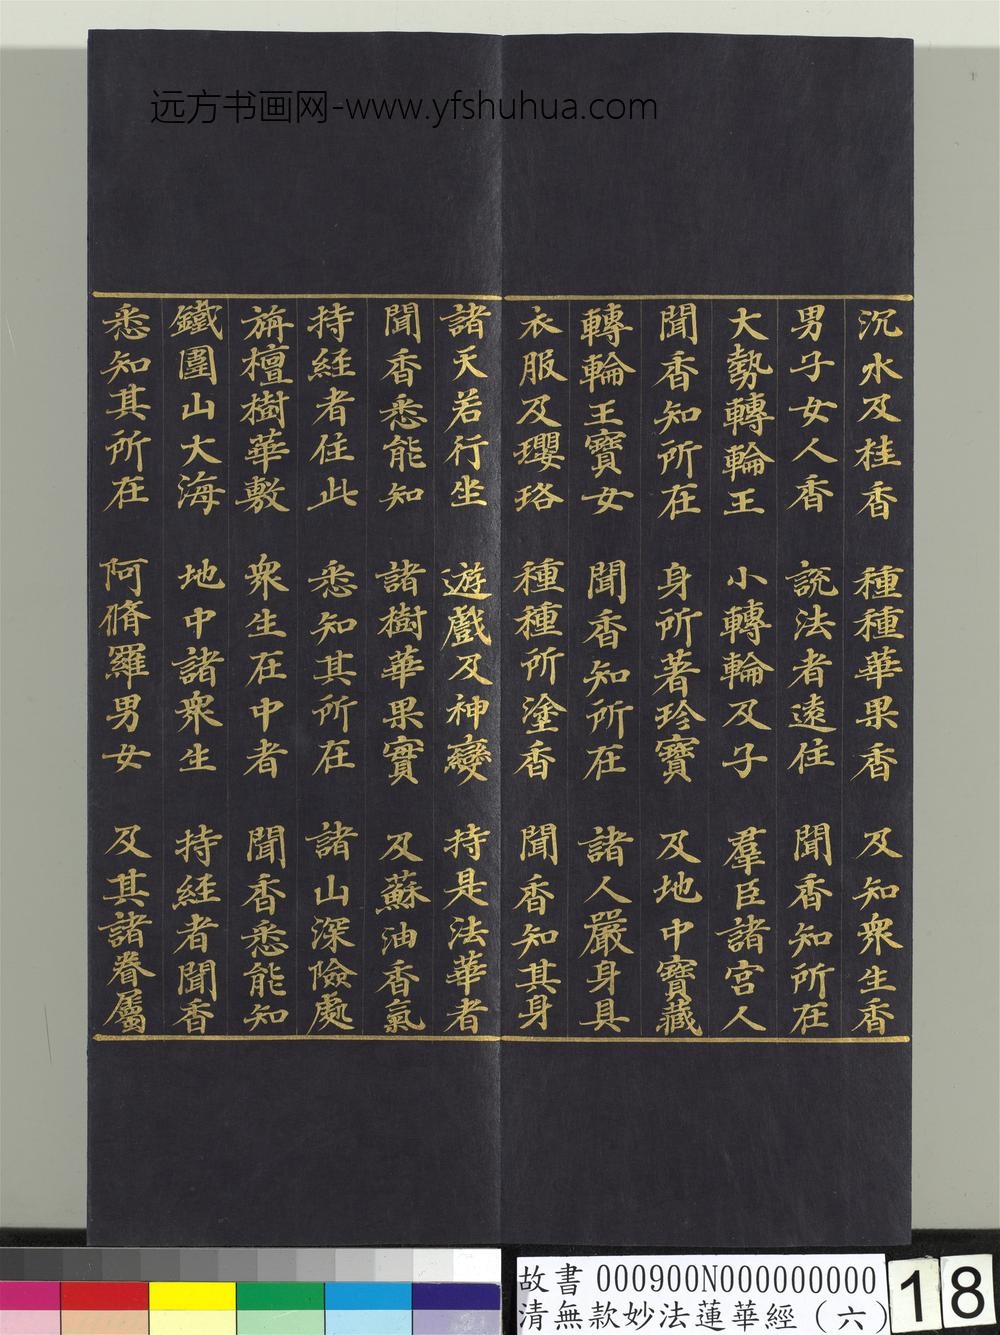 远方书画网-www.yfshuhua.com
沉水及桂香 種種華果香 及知衆生香
男子女人香 說法者遠住 聞香知所在
大勢轉輪王 小轉輪及子 羣臣諸宮人
聞香知所在 身所著珍寶 及地中寶藏
轉輪王寶女 聞香知所在 諸人嚴身具
衣服及瓔珞 種種所塗香 聞香知其身
諸天若行坐 遊戲及神變 持是法華者
聞香悉能知 諸樹華果實 及蘇油香氣
持經者住此 悉知其所在 諸山深險處
旃檀樹華敷 衆生在中者 聞香悉能知
鐵圍山大海 地中諸衆生 持經者聞香
悉知其所在 阿脩羅男女 及其諸眷屬
故書 000900N000000000
清無款妙法蓮華經（六）
18